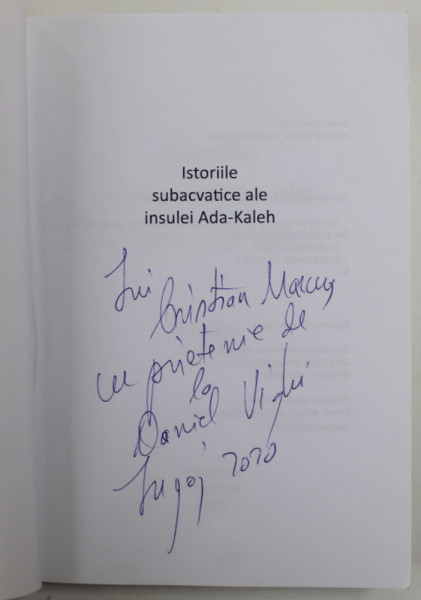 Istoriile
subacvatice ale
insulei Ada-Kaleh
Lui
Cristian Marcu
cu prietenie de
la
Daniel Vighi
Lugoj 2020